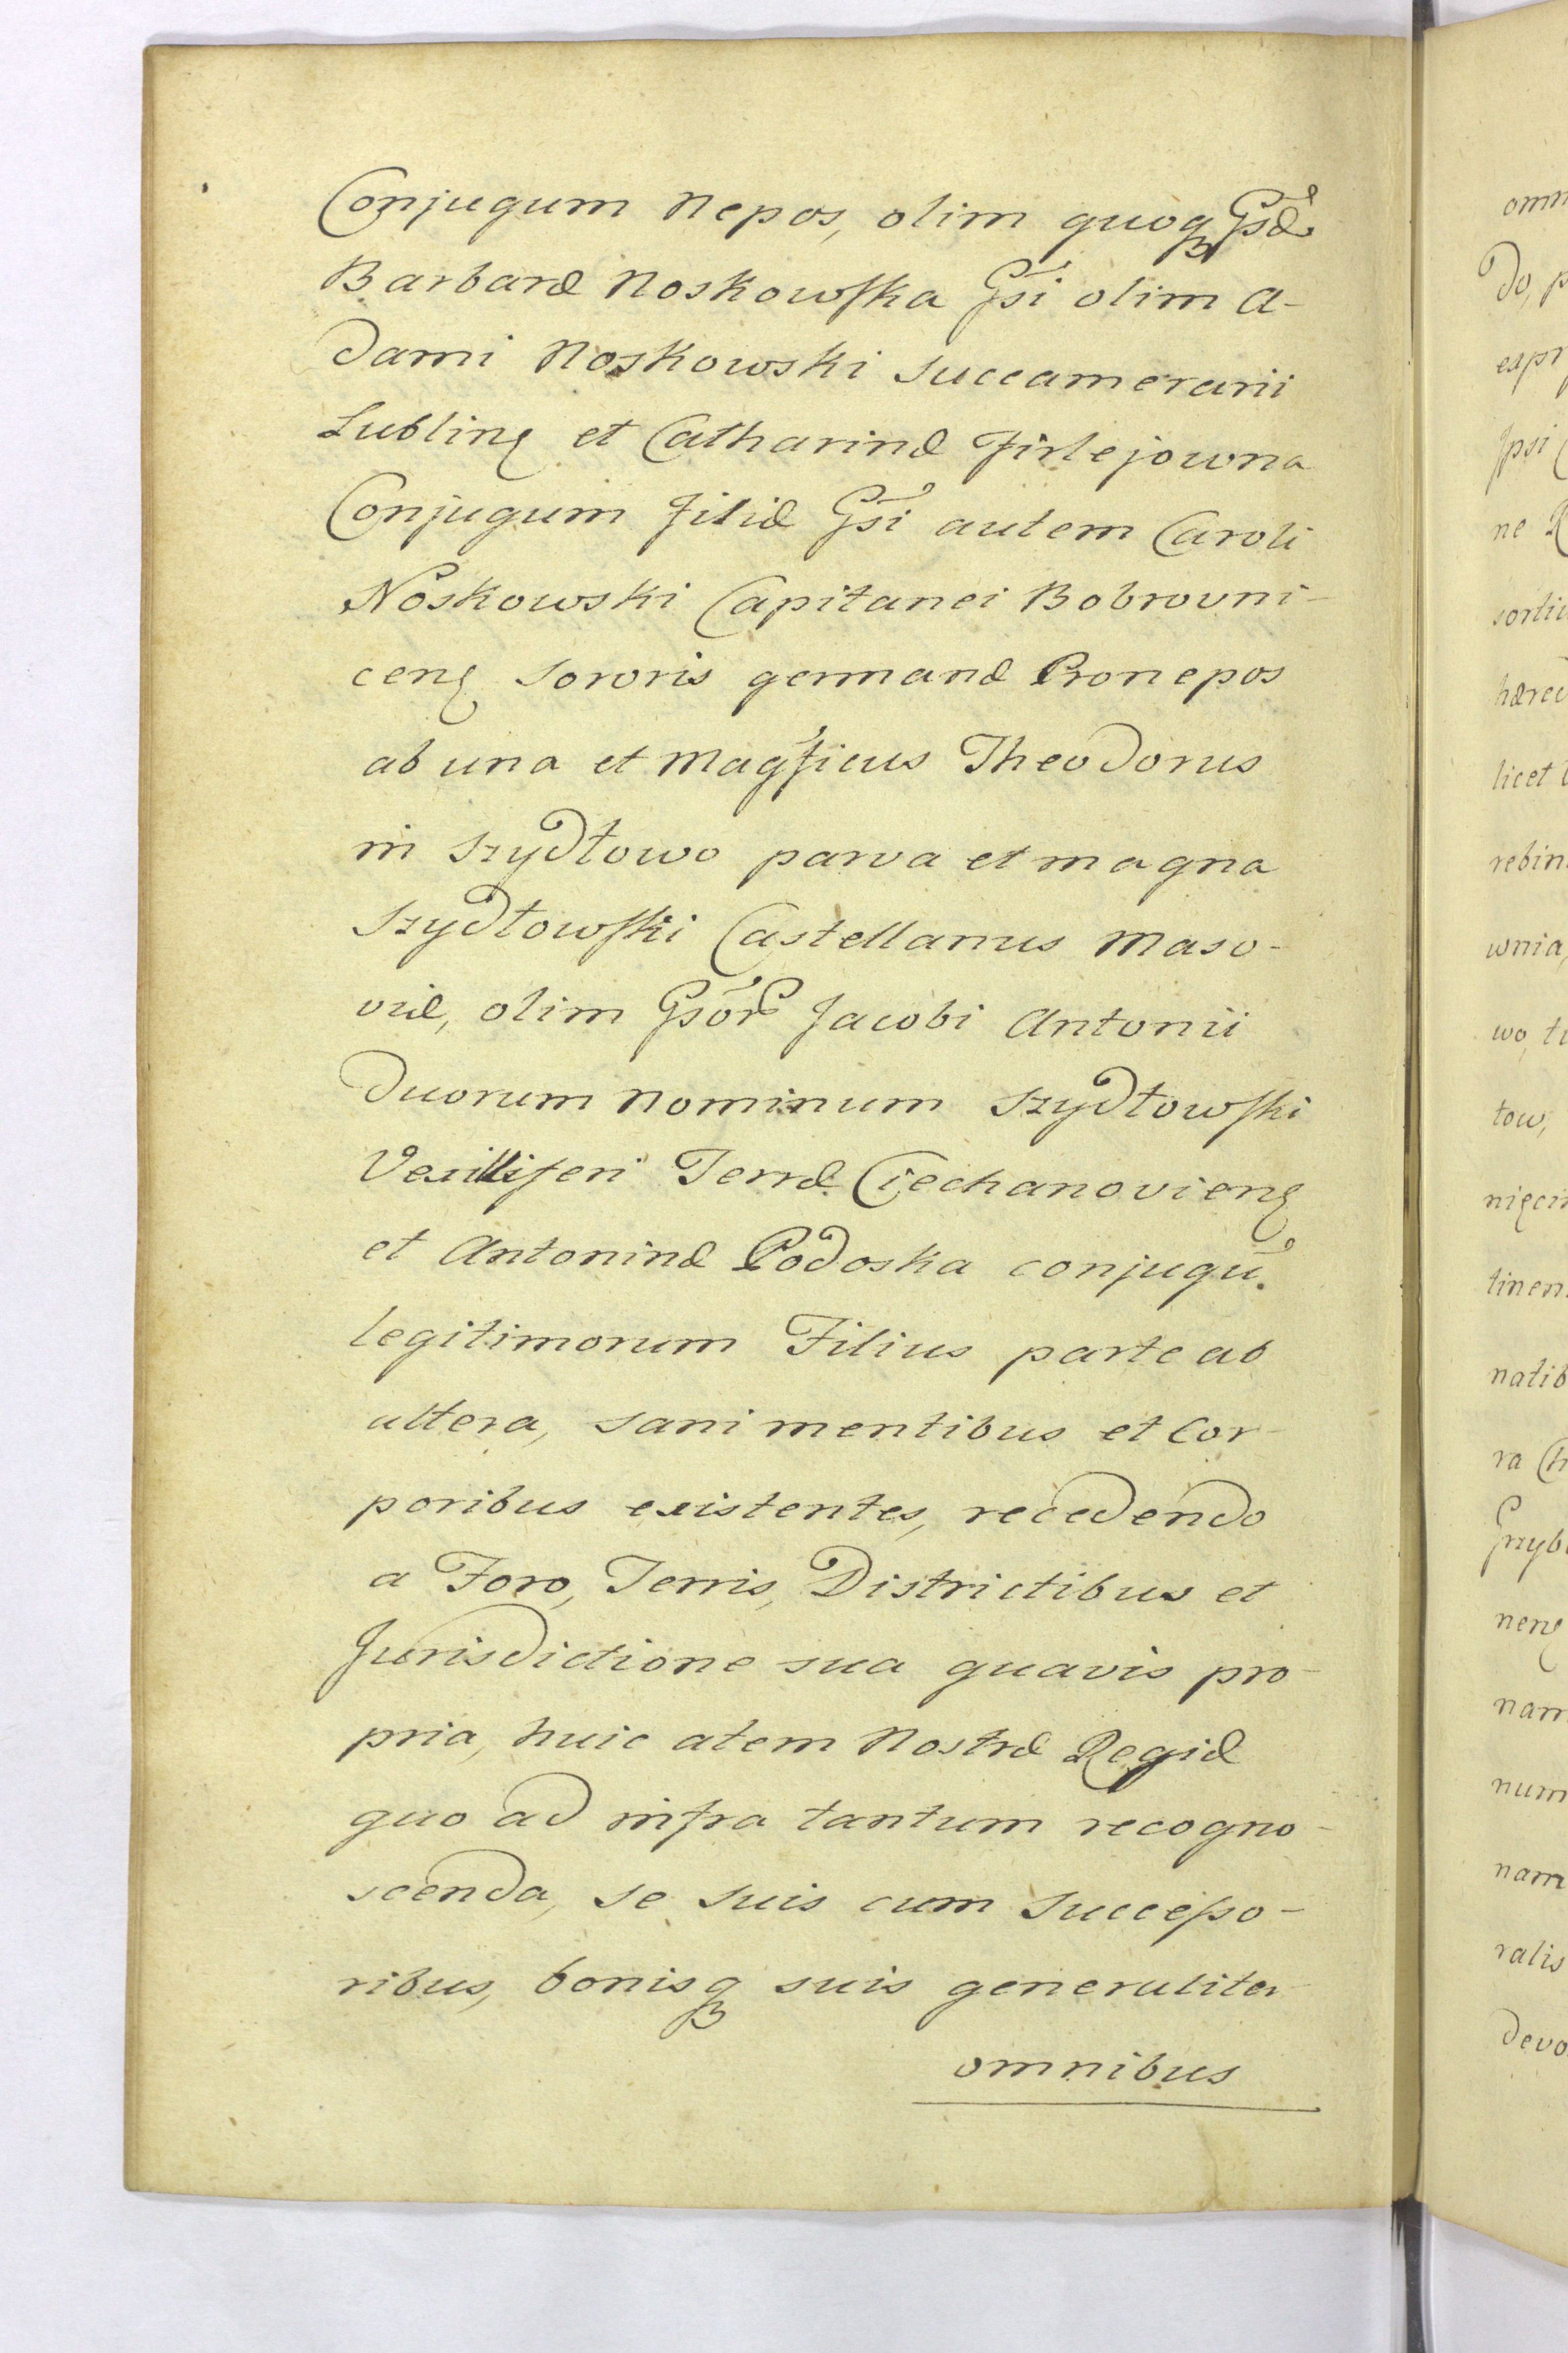 Conjugum Nepos, olim quoq Gsæ
Barbaræ Noskowska Gsi olim A-
dami Noskowski Succamerarii
Lubling et Catharinæ Firlejowna
Conjugum Filiæ Gsi autem Caroli
Noskowski Capitanei Bobrovni-
ceng sororis germanæ Pronepos
ab una et Magficus Theodorus
in Szydłowo parva et magna
Szydłowski Castellanus Maso-
viæ, olim Gsor Jacobi Antonii
duorum Nominum Szydłowski
Vexilliferi Terræ Ciechanovieng
et Antoninæ Podoska conjugū.
legitimorum Filius parte ab
altera, sani mentibus et Cor-
poribus existentes, recedendo
a Foro, Terris, Districtibus et
Jurisdictione sua quavis pro-
pria, huic atem Nostræ Regiæ
quo ad infra tantum recogno-
scenda, se suis cum Successo-
ribus, bonisq suis generaliter
omnibus
omn
do, p
expr
Jpsi
ne R
sortiu
hæred
licet
rebin
wnia,
wo, tu
tow,
nięcin
tinen
natib
ra Ch
Grzyb
neng
nam
num
nam
ralis
devo